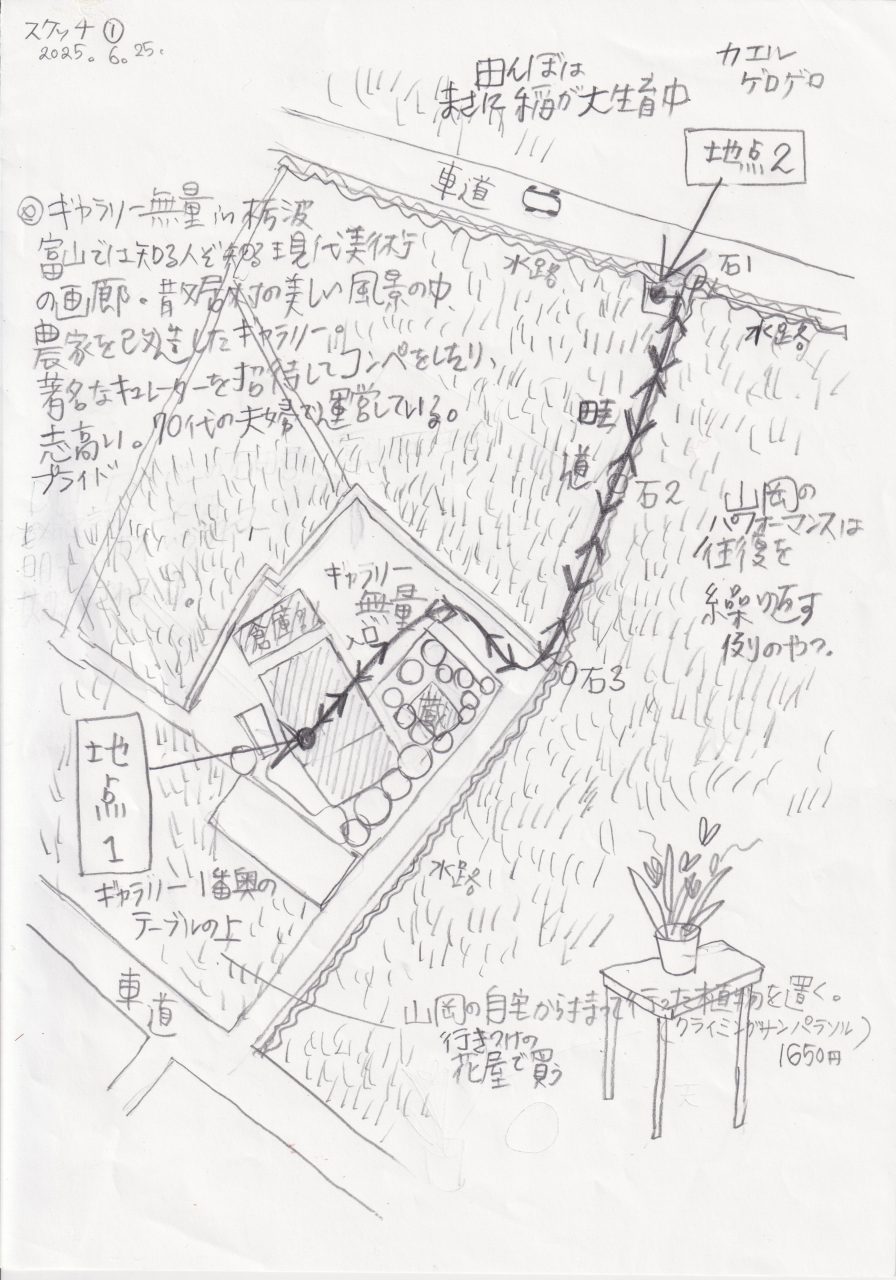 スケッチ①
2025.6.25.
田んぼは
まさに稲が大生育中
カエル
ゲロゲロ
地点2
車道
◎ギャラリー無量 in 栃波
富山では知る人ぞ知る現代美術
の画廊。散居村の美しい風景の中、
農家を改造したギャラリー。
著名なキュレーターを招待してコンペをしたり、
志高い。70代の夫婦で運営している。
プライド
水路
石1
水路
畦道
石2
山岡の
パフォーマンスは
往復を
繰り返す
例のやつ。
ギャラリー
無量
入口
倉庫
蔵
石3
地点1
ギャラリー1番奥の
テーブルの上
水路
車道
山岡の自宅からもって行った植物を置く。
(クライミングサンパラソル)
行きつけの
花屋で買う
1650円